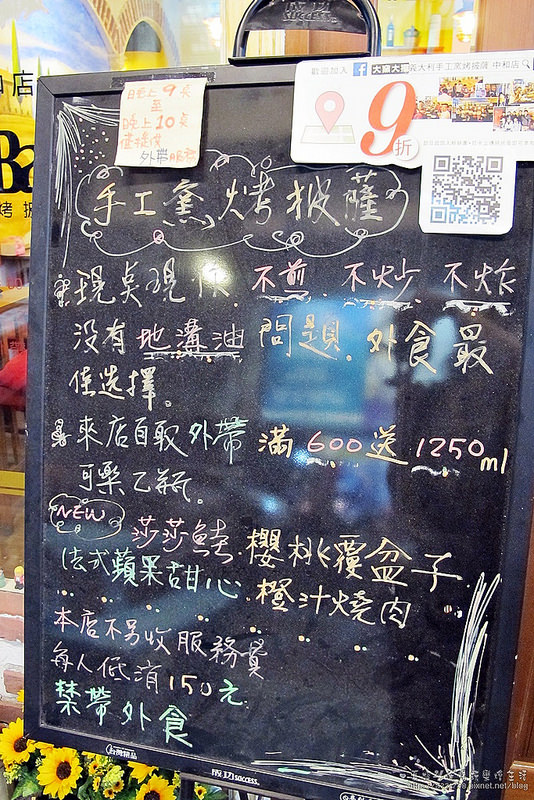 SUCCESS
店
晚上9点
至
晚上10点
僅提供
外帶服務
歡迎加入 f 大窯大擺義大利手工窯烤披薩 中和店
9折
手工窯烤披薩
現点現作 不煎 不炒 不炸
没有地溝油問題. 外食最
佳选擇。
來店自取外帶 滿600送1250ml
可樂乙瓶。
NEW 莎莎鮭 櫻桃覆盆子
法式蘋果甜心 橙汁燒肉
本店不另收服務費
每人低消150元
禁帶外食
台灣精品
成功 success.